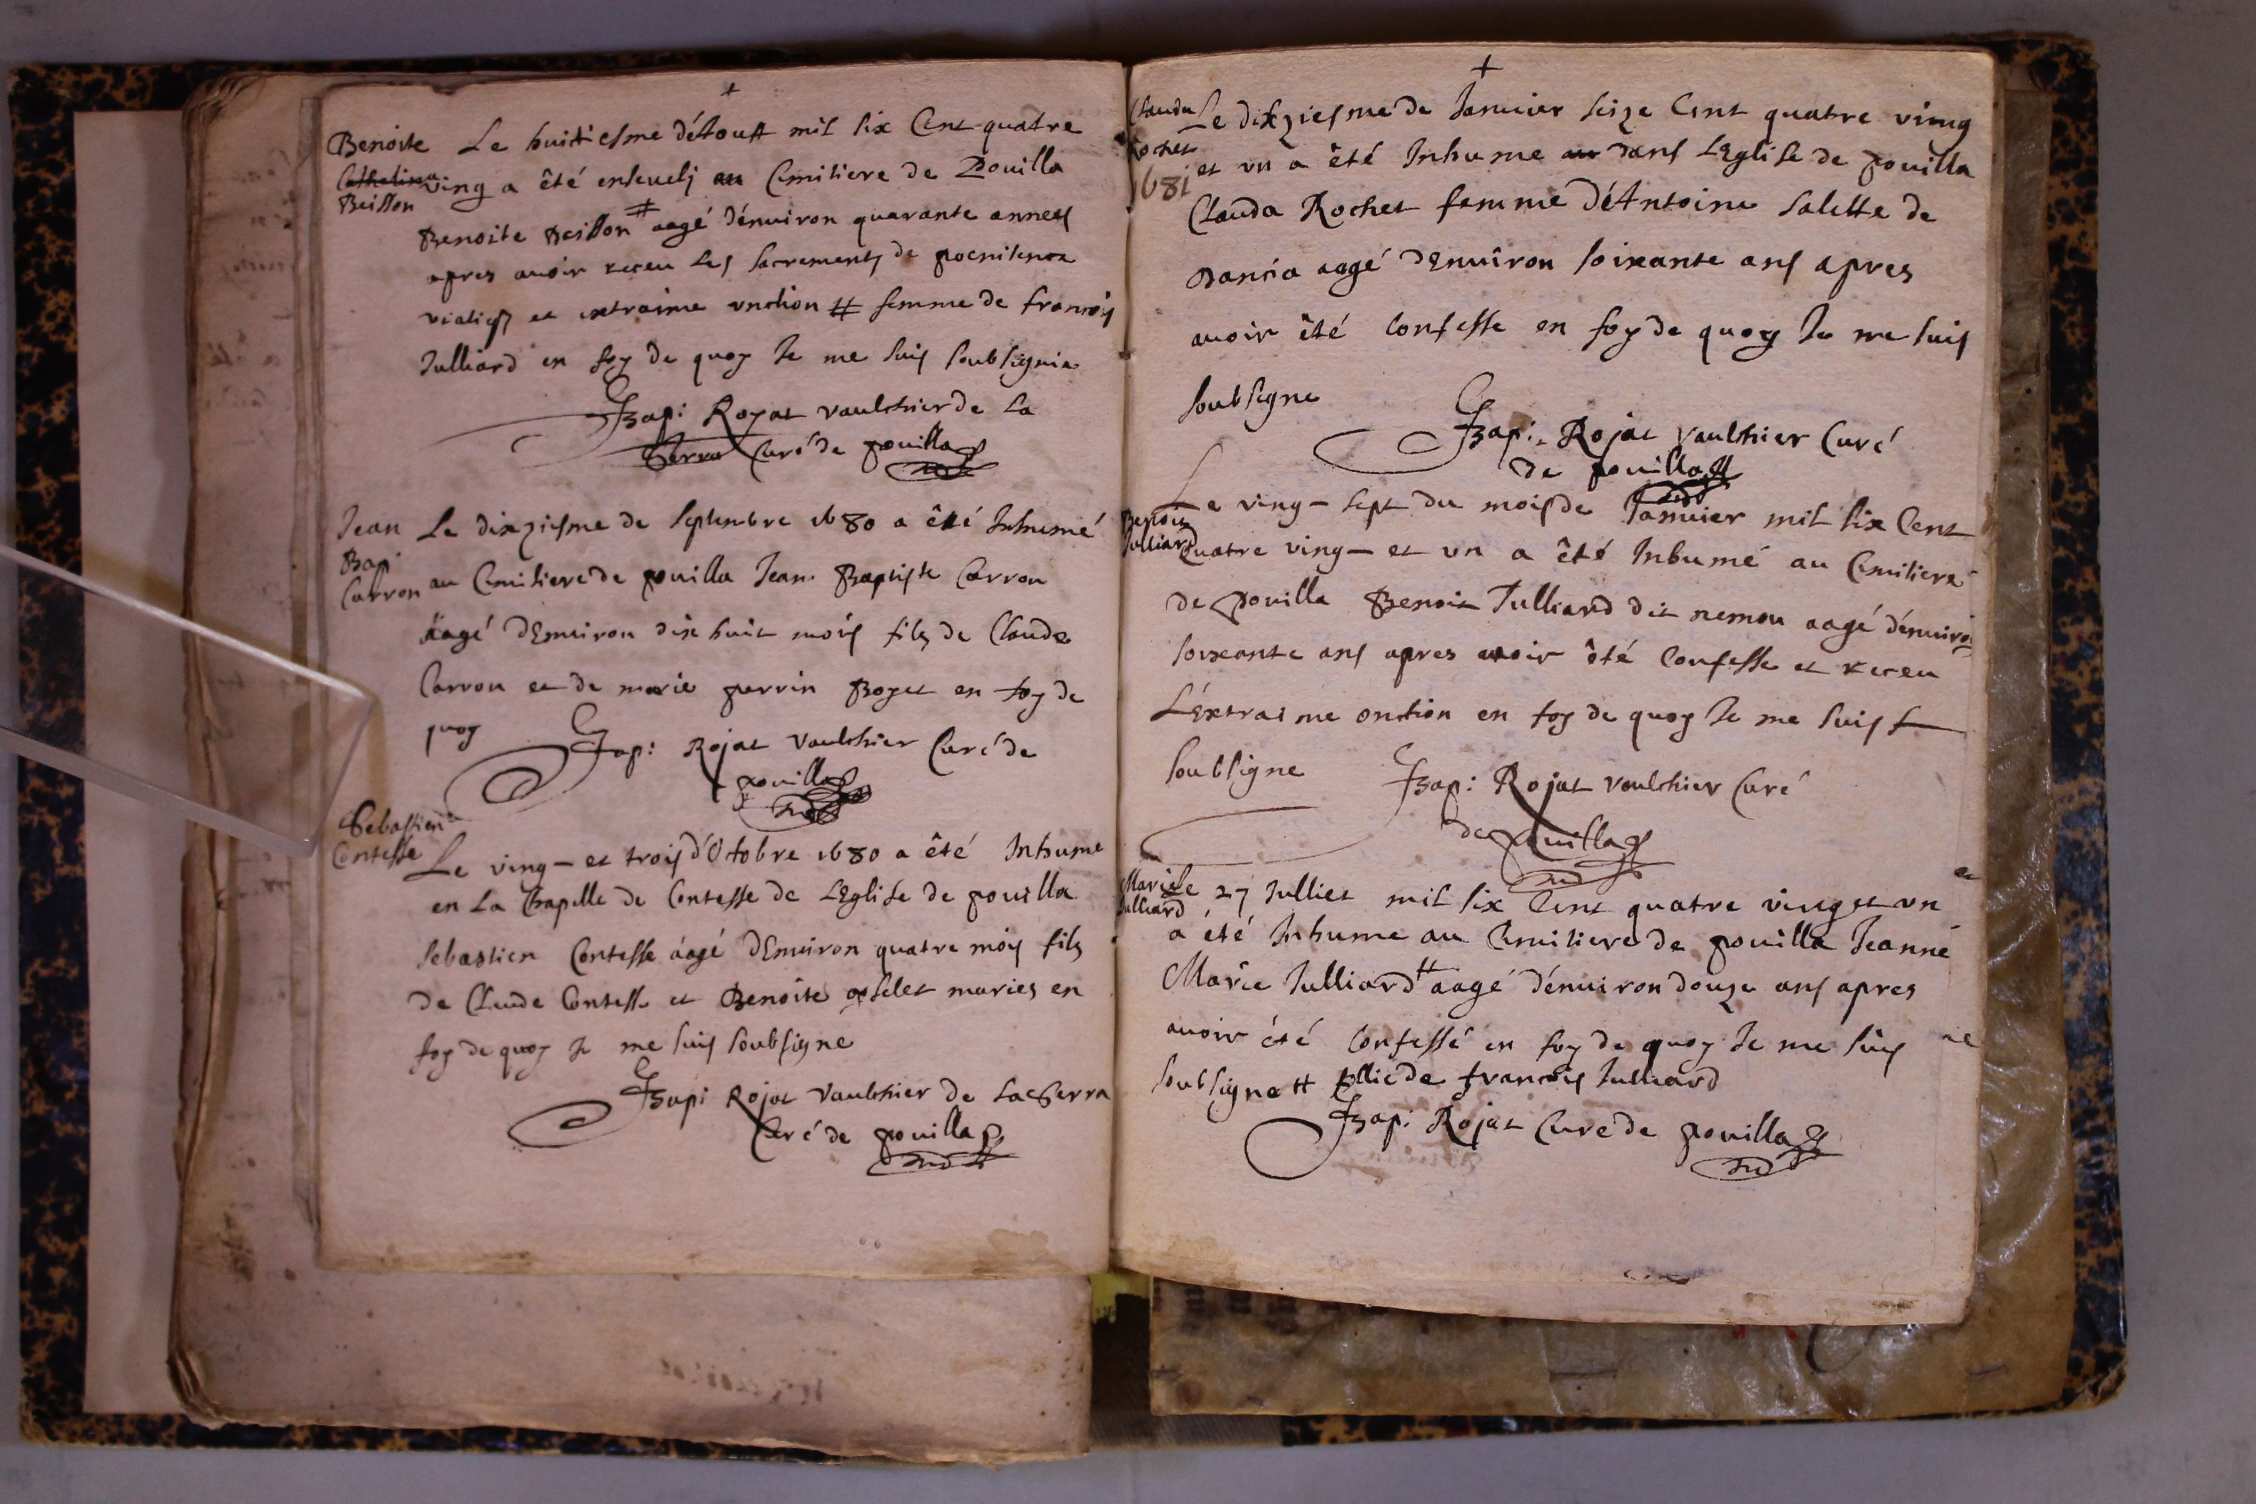 +
Benoite
Catheline
Brisson
Le huitiesme d'Aoust mil six Cent quatre
ving a été enseueli au Cimitiere de Pouilla
Benoite Brisson # aagé dénuiron quarante annees
apres auoir receu les sacrements de poenitence
viatiq et extraime vnction # femme de francois
Julliard en foy de quoy Je me suis soubsignie
Bapi: Rojat vaulchier de La
Serra Curé de pouilla
Jean
Bap:
Carron
Le dixziesme de septembre 1680 a été Inhumé
au Cimitiere de pouilla Jean Baptiste Carron
aagé dEnuiron dix huit mois fils de Claude
Carron et de marie perrin Boget en foy de
quoy
Bapi: Rojat vaulchier Curé de
pouilla
Sebastien
Contesse
Le ving – et trois d'Octobre 1680 a été Inhume
en La Chapelle de Contesse de LEglise de pouilla
sebastien Contesse áagé dEnuiron quatre mois fils
de Claude Contesse et Benoite maries en
foy de quoy Je me suis soubsigne
Bapi Rojat vaulchier de LaSerra
Curé de pouilla
+
Clauda
Rochet
1681
Le dixziesme de Januier seize Cent quatre ving
et vn a été Inhume dans LEglise de pouilla
Clauda Rochet femme d'Antoine salette de
Dancia aagé dEnuiron soixante ans apres
auoir été Confesse en foy de quoy Je me suis
soubsigne
Bapi: Rojat vaulchier Curé
de pouilla
Benoit
Julliard
Le ving – sept du mois de Januier mil six Cent
Quatre ving – et vn a été Inhumé au Cimitiere
de pouilla Benoit Julliard dit nemou aagé dénuiron
soixante ans apres auoir été Confesse et receu
L'Extraime onction en foy de quoy Je me suis s
soubsigne
Bapi: Rojat vaulchier Curé
de pouilla
Marie
Julliard
Le 27 Julliet mil six Cent quatre ving et vn
a été Inhume au Cimitiere de pouilla Jeanne
Marie Julliard # aagé dénuiron douze ans apres
auoir été Confessé en foy de quoy Je me suis
soubsigne # fillie de francois Julliard
Bapi: Rojat Cure de pouilla